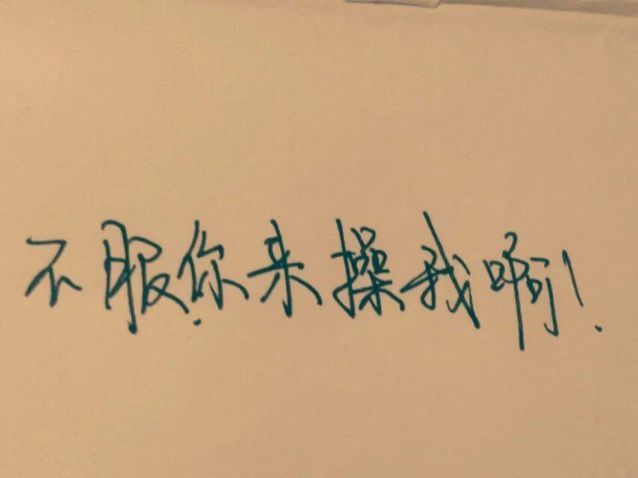 不服你来操我啊!